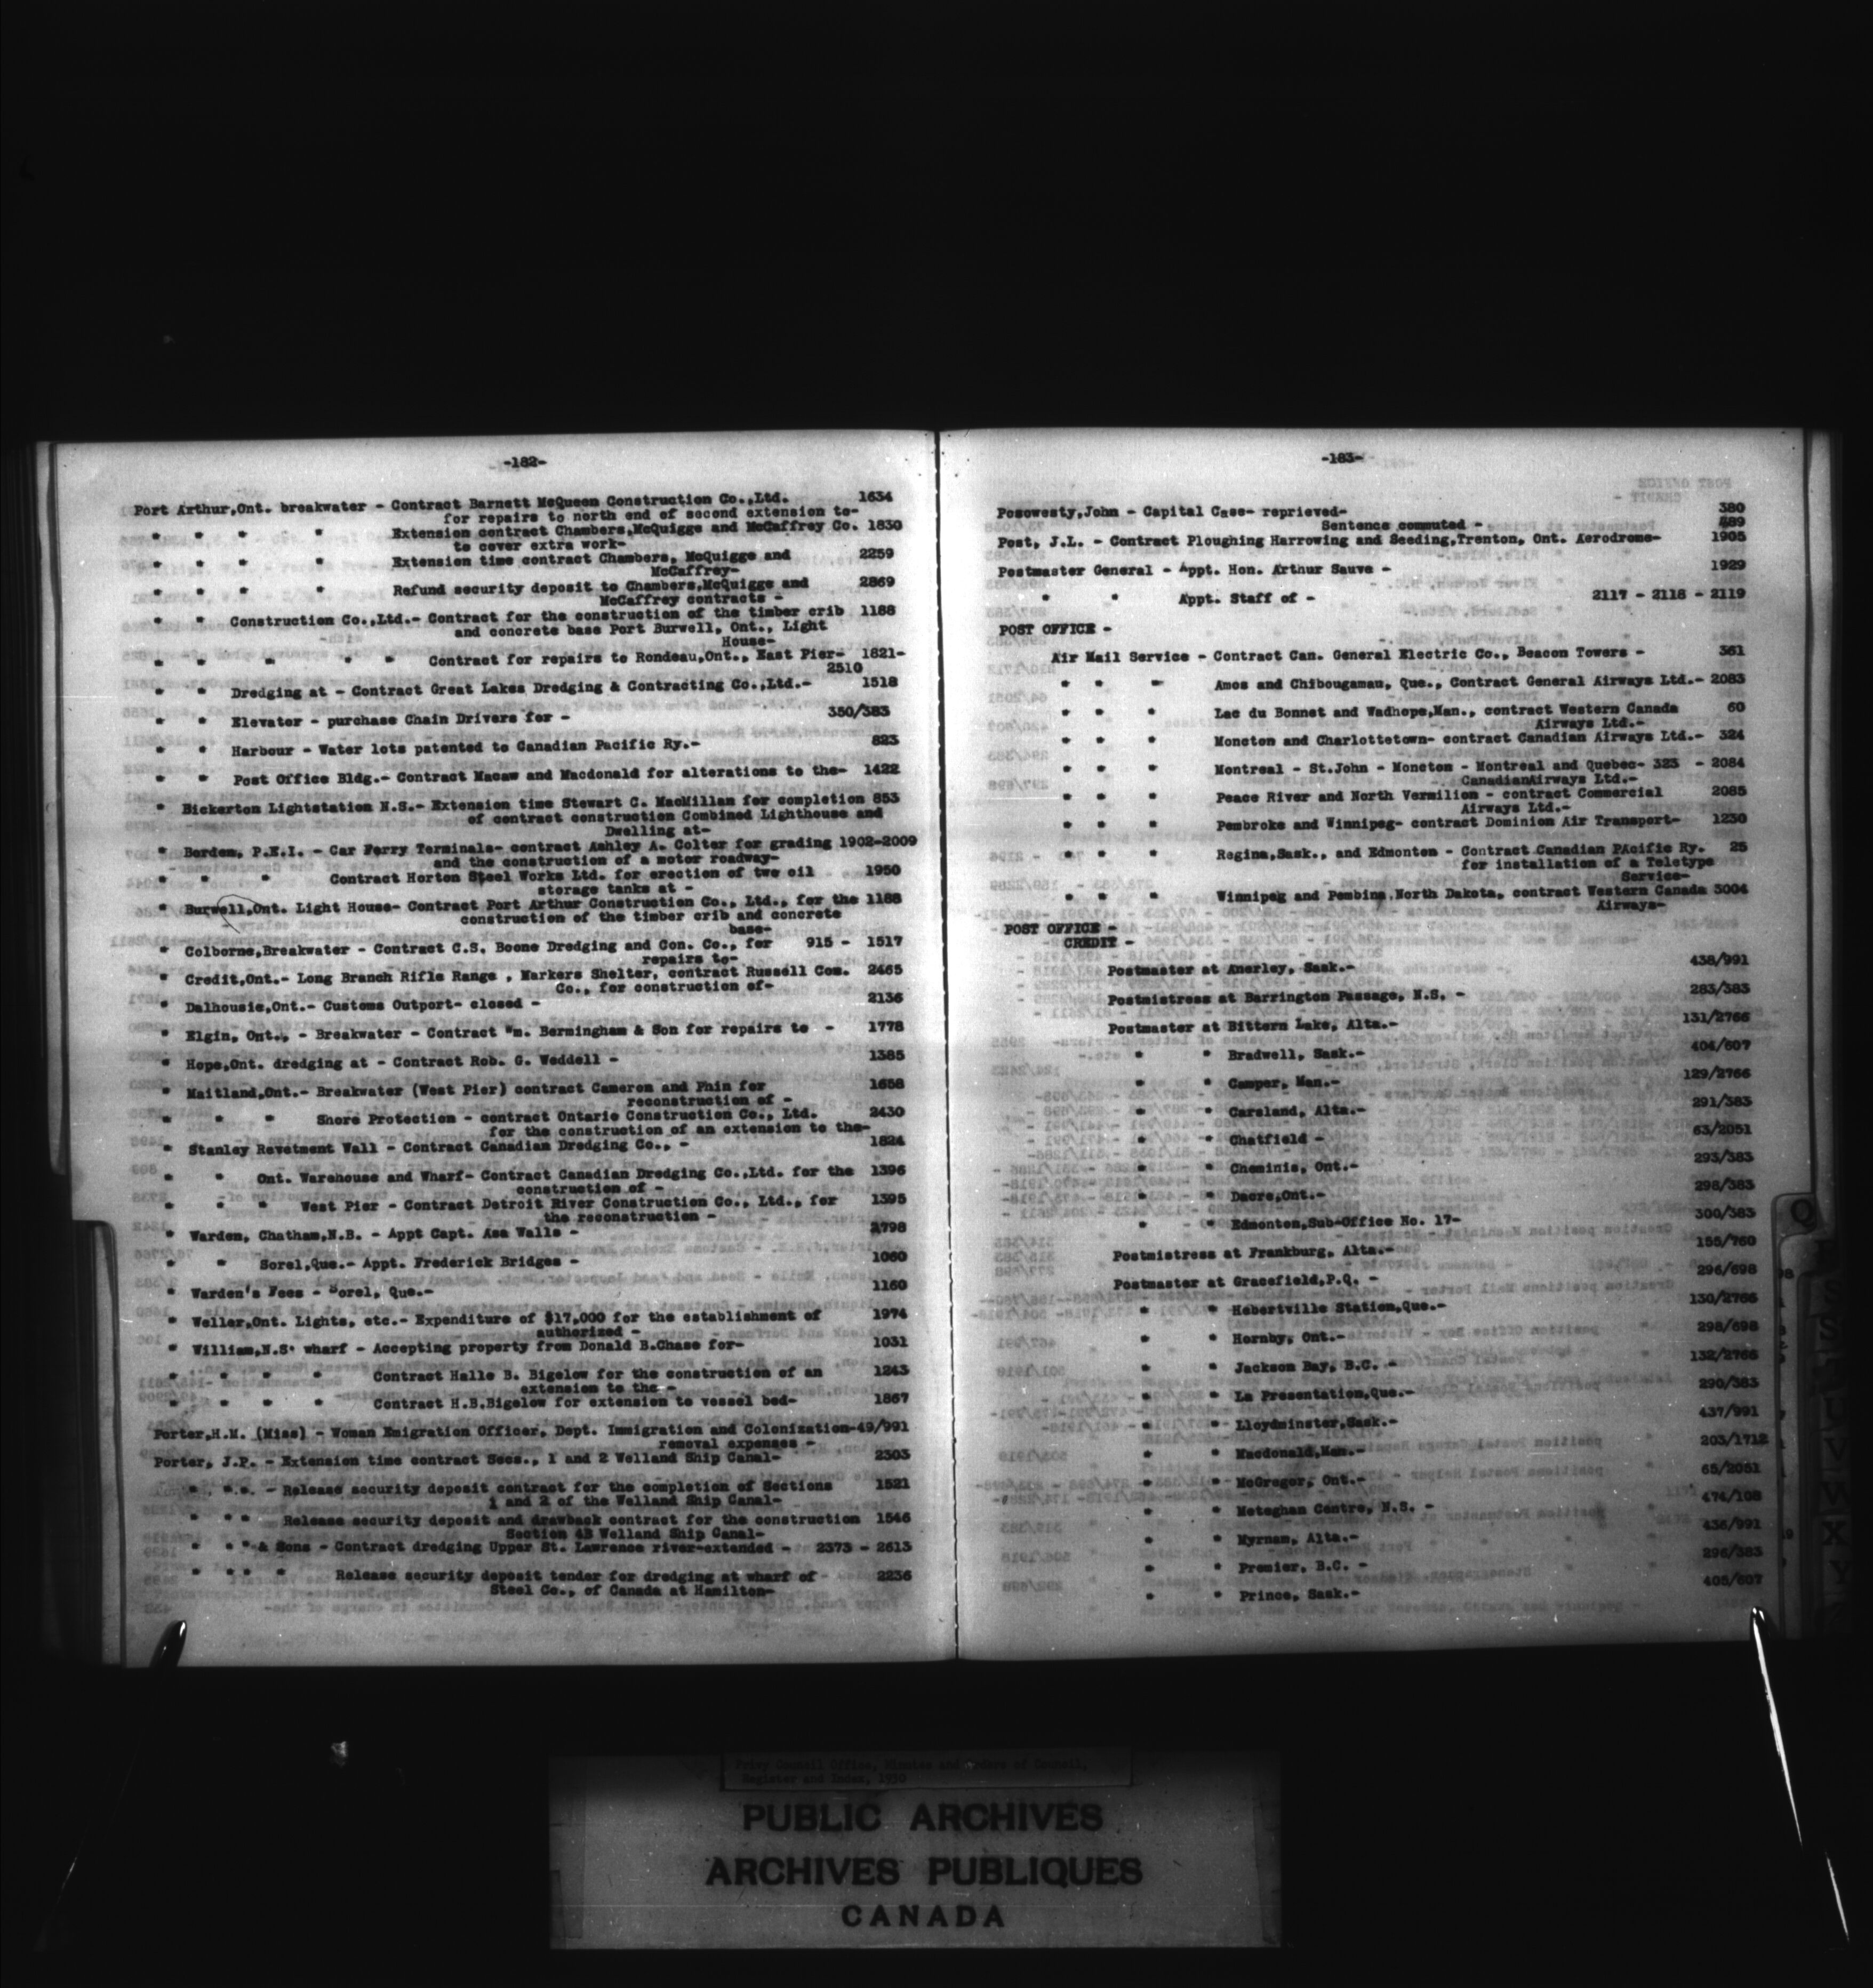 -182-
Port Arthur,Ont. breakwater - Contract Barnett McQueen Construction Co.,Ltd. 1634
for repairs to north end of second extension to-
" " " " Extension contract Chambers,McQuigge and McCaffrey Co. 1830
to cover extra work-
" " " " Extension time contract Chambers, McQuigge and 2259
McCaffrey-
" " " " Refund security deposit to Chambers,McQuigge and 2869
McCaffrey contracts -
" " Construction Co.,Ltd.- Contract for the construction of the timber crib 1188
and concrete base Port Burwell, Ont., Light
House-
" " " " " Contract for repairs to Rondeau,Ont., East Pier- 1821-
2510
" " Dredging at - Contract Great Lakes Dredging & Contracting Co.,Ltd.- 1518
" " Elevator - purchase Chain Drivers for - 350/383
" " Harbour - Water lots patented to Canadian Pacific Ry.- 823
" " Post Office Bldg.- Contract Macaw and Macdonald for alterations to the- 1422
" Bickerton Lightstation N.S.- Extension time Stewart C. MacMillan for completion 853
of contract construction Combined Lighthouse and
Dwelling at-
" Borden, P.E.I. - Car Ferry Terminals- contract Ashley A. Colter for grading 1902-2009
and the construction of a motor roadway-
" " " Contract Horton Steel Works Ltd. for erection of two oil 1950
storage tanks at -
" Burwell,Ont. Light House- Contract Port Arthur Construction Co., Ltd., for the 1188
construction of the timber crib and concrete
base-
" Colborne,Breakwater - Contract C.S. Boone Dredging and Con. Co., for 915 - 1517
repairs to-
" Credit,Ont.- Long Branch Rifle Range , Markers Shelter, contract Russell Con. 2465
Co., for construction of-
" Dalhousie,Ont.- Customs Outport- closed - 2136
" Elgin, Ont., - Breakwater - Contract Wm. Bermingham & Son for repairs to - 1778
" Hope,Ont. dredging at - Contract Rob. G. Weddell - 1385
" Maitland,Ont.- Breakwater (West Pier) contract Cameron and Phin for 1658
reconstruction of -
" " " Shore Protection - contract Ontario Construction Co., Ltd. 2430
for the construction of an extension to the-
" Stanley Revetment Wall - Contract Canadian Dredging Co., - 1824
" " Ont. Warehouse and Wharf- Contract Canadian Dredging Co.,Ltd. for the 1396
construction of -
" " " West Pier - Contract Detroit River Construction Co., Ltd., for 1395
the reconstruction -
" Warden, Chatham,N.B. - Appt Capt. Asa Walls - 2798
" " Sorel,Que.- Appt. Frederick Bridges - 1060
" Warden's Fees - Sorel, Que.- 1160
" Weller,Ont. Lights, etc.- Expenditure of $17,000 for the establishment of 1974
authorized -
" William,N.S. wharf - Accepting property from Donald B.Chase for- 1031
" " " " Contract Halle B. Bigelow for the construction of an 1243
extension to the -
" " " " Contract H.B.Bigelow for extension to vessel bed- 1867
Porter,H.M. (Miss) - Woman Emigration Officer, Dept. Immigration and Colonization-49/991
removal expenses -
Porter, J.P. - Extension time contract Secs., 1 and 2 Welland Ship Canal- 2303
" "." - Release security deposit contract for the completion of Sections 1521
1 and 2 of the Welland Ship Canal-
" " " Release security deposit and drawback contract for the construction 1546
Section 4B Welland Ship Canal-
" " "& Sons - Contract dredging Upper St. Lawrence river-extended - 2373 - 2613
" " " " Release security deposit tender for dredging at wharf of 2236
Steel Co., of Canada at Hamilton-
-183-
Posowesty,John - Capital Case- reprieved- 380
Sentence commuted - 889
Post, J.L. - Contract Ploughing Harrowing and Seeding,Trenton, Ont. Aerodrome- 1905
Postmaster General - Appt. Hon. Arthur Sauve - 1929
" " Appt. Staff of - 2117 - 2118 - 2119
POST OFFICE -
Air Mail Service - Contract Can. General Electric Co., Beacon Towers - 361
" " " Amos and Chibougamau, Que., Contract General Airways Ltd.- 2083
" " " Lac du Bonnet and Wadhope,Man., contract Western Canada 60
Airways Ltd.-
" " " Moncton and Charlottetown- contract Canadian Airways Ltd.- 324
" " " Montreal - St.John - Moncton - Montreal and Quebec- 323 - 2084
CanadianAirways Ltd.-
" " " Peace River and North Vermilion - contract Commercial 2085
Airways Ltd.-
" " " Pembroke and Winnipeg- contract Dominion Air Transport- 1230
" " " Regina,Sask., and Edmonton - Contract Canadian PAcific Ry. 25
for installation of a Teletype
Service-
" " " Winnipeg and Pembina,North Dakota, contract Western Canada 3004
Airways-
POST OFFICE -
CREDIT -
Postmaster at Anerley, Sask.- 438/991
Postmistress at Barrington Passage, N.S. - 283/383
Postmaster at Bittern Lake, Alta.- 131/2766
" " Bradwell, Sask.- 404/607
" " Camper, Man.- 129/2766
" " Carsland, Alta.- 291/383
" " Chatfield - 63/2051
" " Cheminis, Ont.- 293/383
" " Dacre,Ont.- 298/383
" " Edmonton,Sub-Office No. 17- 300/383
Postmistress at Frankburg, Alta.- 155/760
Postmaster at Gracefield,P.Q. - 296/698
" " Hebertville Station,Que.- 130/2766
" " Hornby, Ont.- 298/698
" " Jackson Bay, B.C. - 132/2766
" " La Presentation,Que.- 290/383
" " Lloydminster,Sask.- 437/991
" " Macdonald,Man.- 203/1712
" " McGregor, Ont.- 65/2051
" " Meteghan Centre, N.S. - 474/108
" " Myrnam, Alta.- 436/991
" " Premier, B.C. - 296/383
" " Prince, Sask.- 405/607
Q
S
T
U
V
W
X
Y
Privy Council Office, Minutes and Orders of Council,
Register and Index, 1930
PUBLIC ARCHIVES
ARCHIVES PUBLIQUES
CANADA